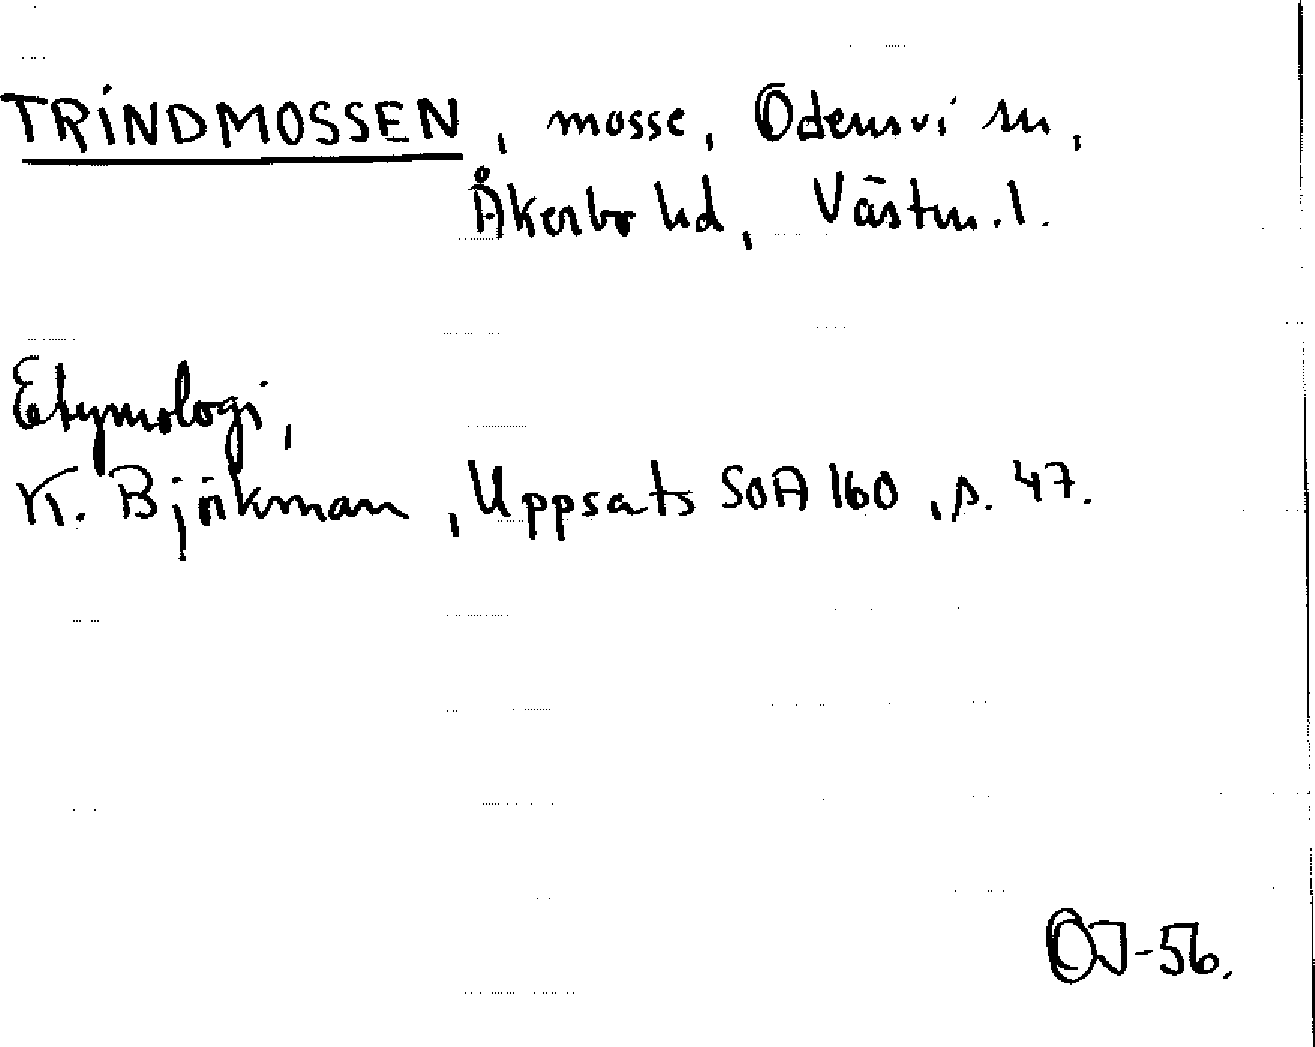 TRINDMOSSEN, mosse, Odensvi sn,
Åkerbo hd, Västm.l.
Etymologi,
K. Björkman, Uppsats SOA 160, s. 47.
OJ-56.